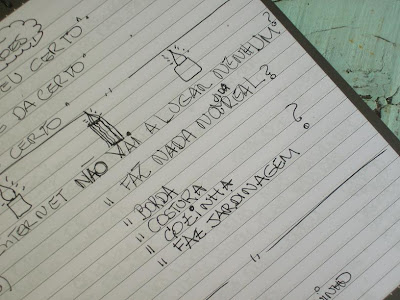 EU CERTO"
E DA CERTO"
CERTO"
INTERNET NÃO VAI A LUGAR NENHUM?
" FAZ NADA NO REAL?
" BORDA
" COSTURA
" COZINHA
" FAZ JARDINAGEM ?
"